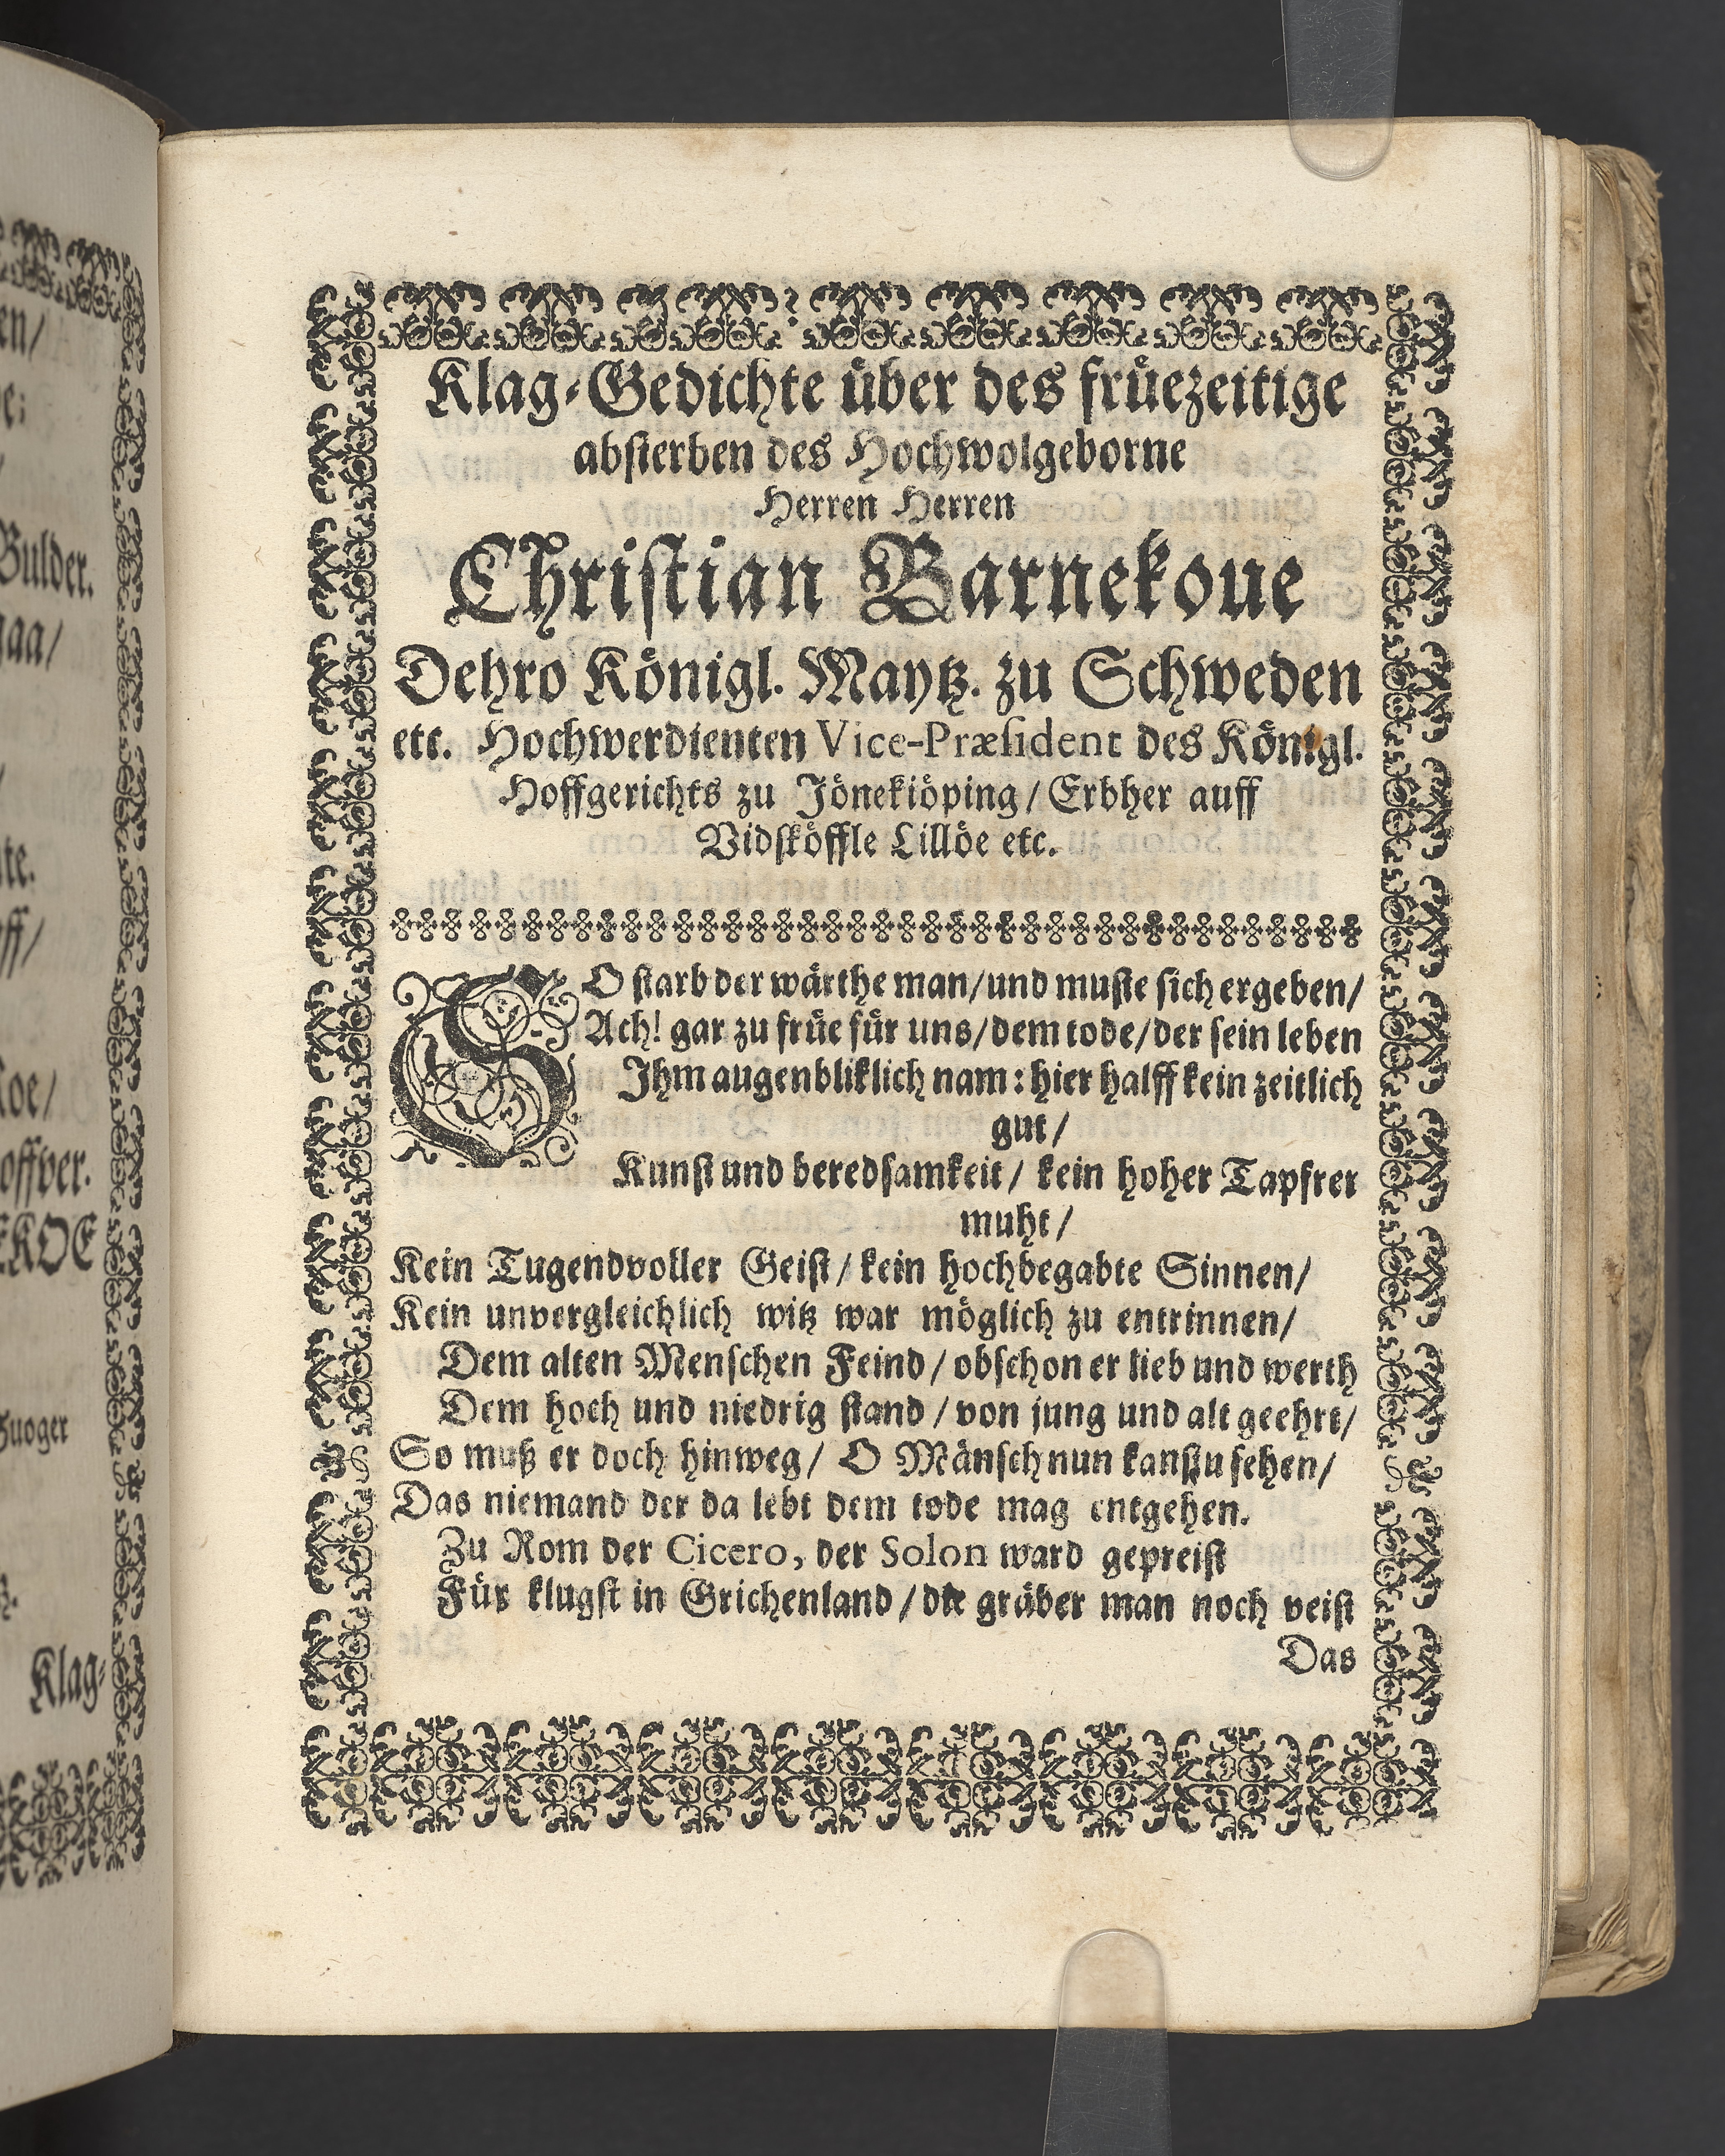 en/
e:
/
Bulder.
gaa/
/
te.
ff/
Koe/
offver.
EKOE
Fuoger
Klag-
Klag-Gedichte über des früezeitige
absterben des Hochwolgeborne
Herren Herren
Christian Barnekoue
Dehro Königl. Maytz. zu Schweden
etc. Hochwerdienten Vice-Præsident des Königl.
Hoffgerichts zu Jönekiöping / Erbher auff
Vidsköffle Lillöe etc.
SO starb der wärthe man/und muste sich ergeben/
Ach! gar zu früe für uns/dem tode/der sein leben
Ihm augenbliklich nam: hier halff kein zeitlich
gut /
Kunst und beredsamkeit / kein hoher Tapfrer
muht /
Kein Tugendvoller Geist / kein hochbegabte Sinnen/
Kein unvergleichlich witz war möglich zu entrinnen/
Dem alten Menschen Feind / obschon er lieb und werth
Dem hoch und niedrig stand / von jung und alt geehrt/
So muß er doch hinweg / O Mänsch nun kanstu sehen/
Das niemand der da lebt dem tode mag entgehen.
Zu Rom der Cicero, der Solon ward gepreist
Für klugst in Grichenland / die gräber man noch veist
Das